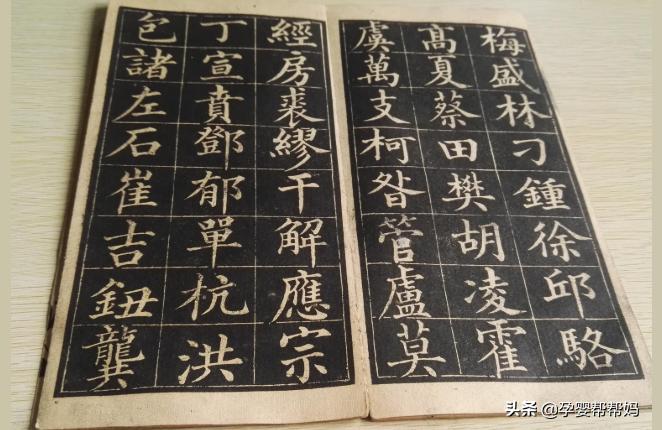 梅盛林刁鍾徐邱駱
髙夏蔡田樊胡凌霍
虞萬支柯昝管盧莫
經房裘繆干解應宗
丁宣賁鄧郁單杭洪
包諸左石崔吉鈕龔
头条 @孕婴帮帮妈